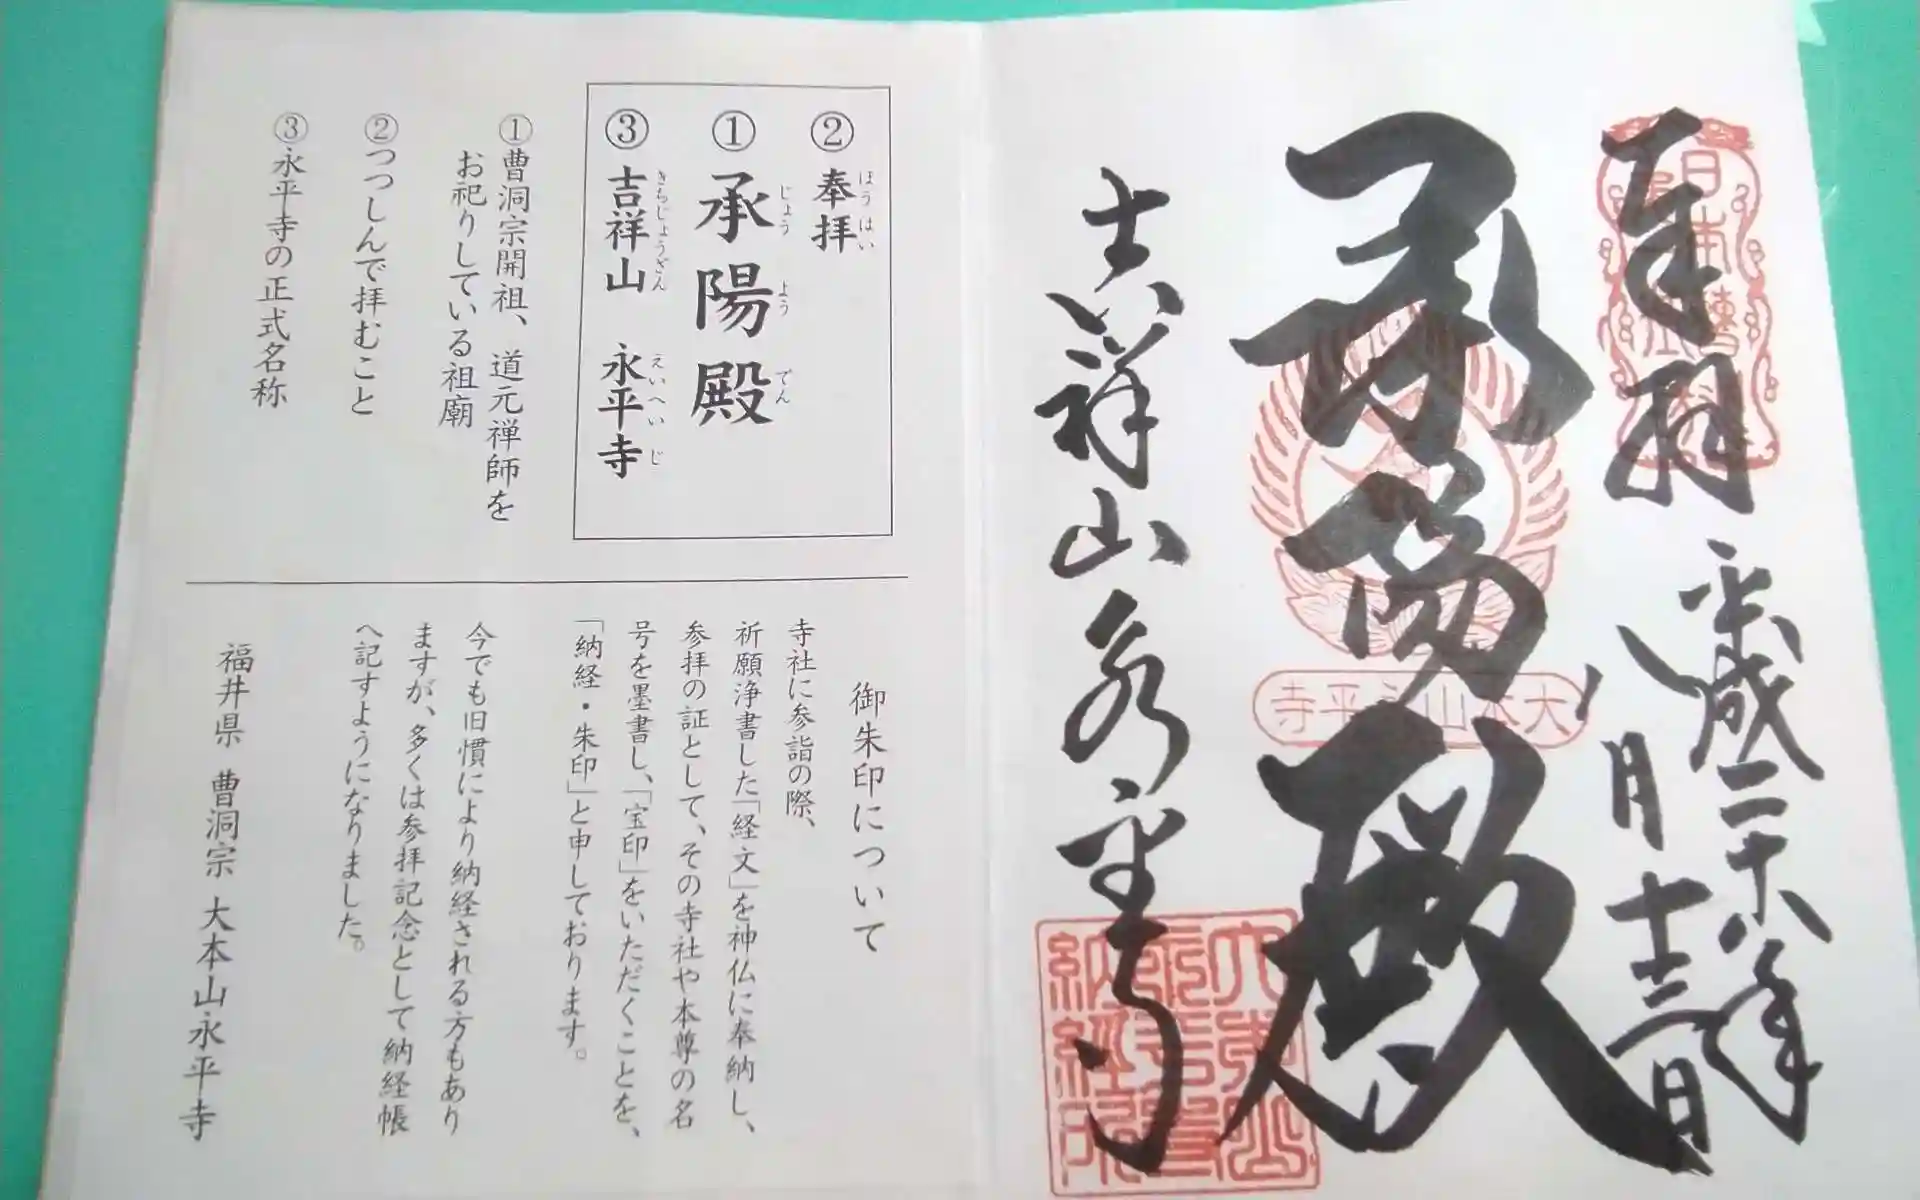 奉拝
平成二十八年
八月十三日
承陽殿
吉祥山永平寺
日本曹洞
大本山永平寺
②奉拝
ほうはい
①承陽殿
じょうようでん
③吉祥山 永平寺
きちじょうざん えいへいじ
①曹洞宗開祖、道元禅師を
お祀りしている祖廟
②つつしんで拝むこと
③永平寺の正式名称
御朱印について
寺社に参詣の際、
祈願浄書した「経文」を神仏に奉納し、
参拝の証として、その寺社や本尊の名
号を墨書し、「宝印」をいただくことを、
「納経・朱印」と申しております。
今でも旧慣により納経される方もあり
ますが、多くは参拝記念として納経帳
へ記すようになりました。
福井県 曹洞宗 大本山永平寺